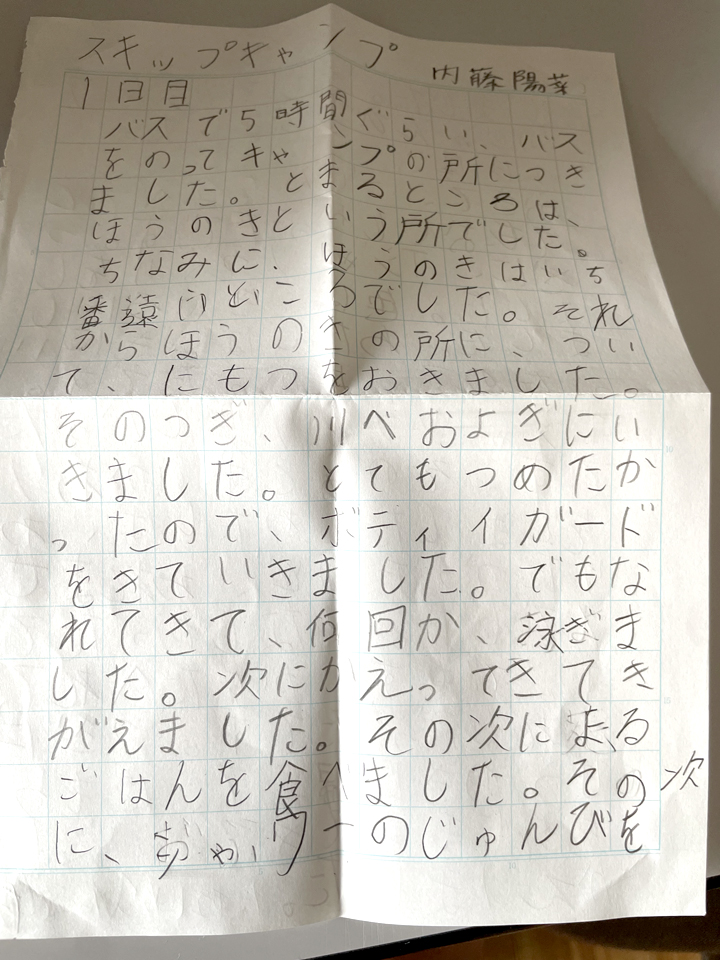 スキップキャンプ
内藤陽菜
1日目
バスで5時間ぐらい、バス
をのってキャンプの所につき
ました。とまるところは、
ほうのきという所でした。
ちなみに、ほうのきはいち
番遠いところでした。それ
からほうのきの所に、つい
て、にもつをおきました。
そのつぎ、川べおよぎにい
きました。とてもつめたか
ったので、ボティイガード
をきていきました。でもな
れてきて、何回か、泳ぎま
した。次にかえってきてき
がえました。その次に
ごはんを食べました。その次
に、 のじゅんびを